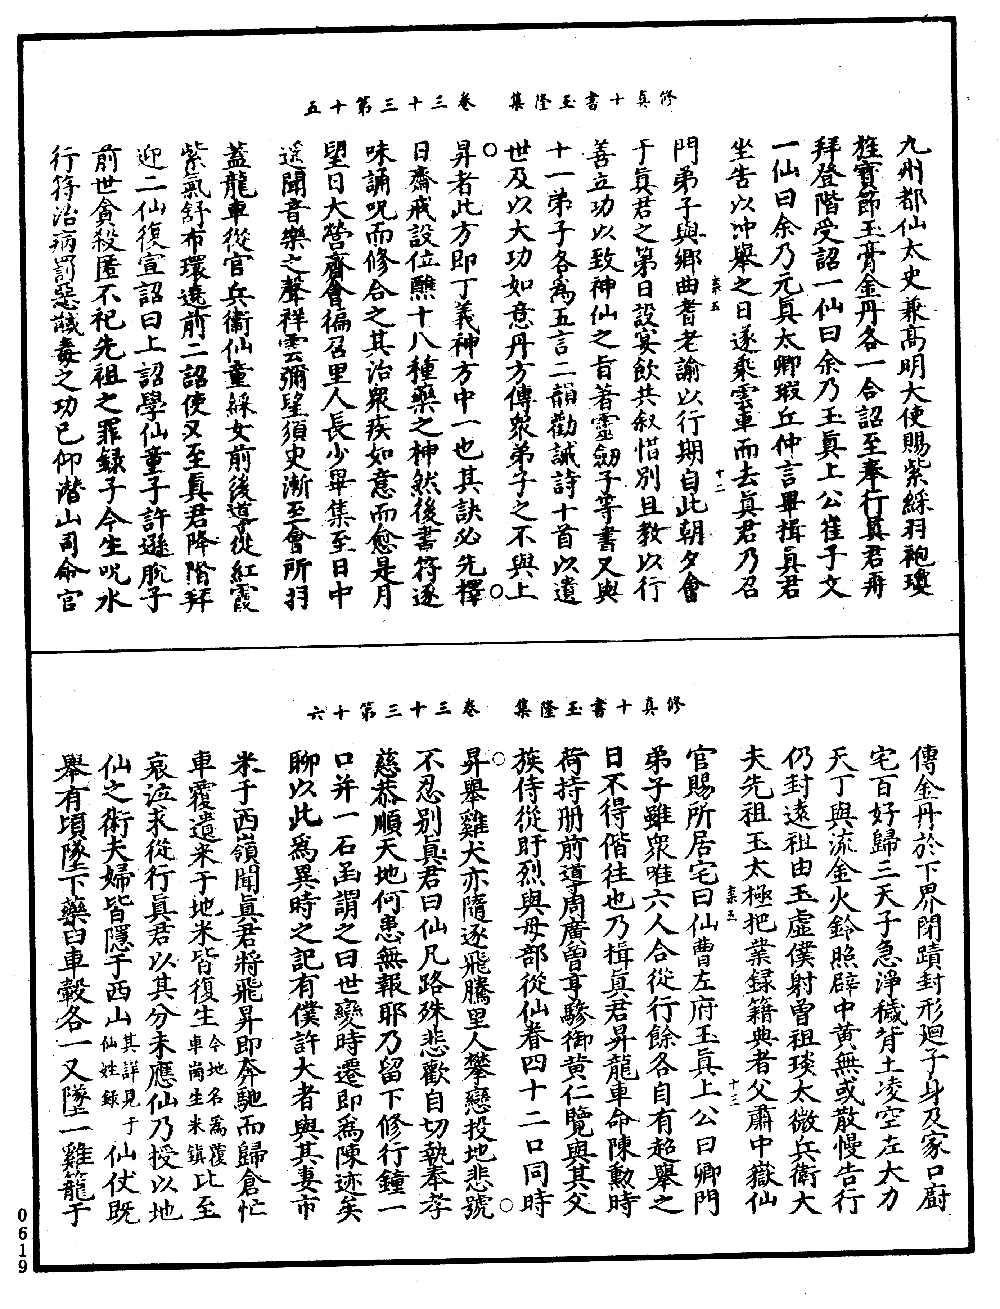 修真十書玉隆集　卷三十三第十五
九州都仙太史兼高明大使賜紫綵羽袍瓊
旌寶節玉膏金丹各一合詔至奉行真君再
拜登階受詔一仙曰余乃玉真上公崔子文
一仙曰余乃元真太卿瑕丘仲言畢揖真君
坐告以冲舉之日遂乘雲車而去真君乃召
門弟子與鄉曲耆老諭以行期自此朝夕會
于真君之第日設宴飲共叙惜別且教以行
善立功以致神仙之旨著靈劔子等書又與
十一弟子各爲五言二韻勸誡詩十首以遺
世及以大功如意丹方傳衆弟子之不與上
昇者此方即丁義神方中一也其訣必先擇
日齋戒設位醮十八種藥之神然後書符逐
味誦呪而修合之其治衆疾如意而愈是月
望日大營齋會徧召里人長少畢集至日中
遥聞音樂之聲祥雲彌望須臾漸至會所羽
蓋龍車從官兵衛仙童綵女前後導從紅霞
紫氣舒布環遶前二詔使又至真君降階拜
迎二仙復宣詔曰上詔學仙童子許遜脫子
前世貪殺匿不祀先祖之罪録子今生呪水
行符治病罰惡馘毒之功已仰潛山司命官
修真十書玉隆集　卷三十三第十六
傳金丹於下界閉蹟封形廻子身及家口厨
宅百好歸三天子急淨穢背土凌空左大力
天丁與流金火鈴照辟中黄無或散慢告行
仍封遠祖由玉虛僕射曾祖琰太微兵衛大
夫先祖玉太極把業録籍典者父肅中嶽仙
官賜所居宅曰仙曹左府玉真上公曰卿門
弟子雖衆唯六人合從行餘各自有超舉之
日不得偕往也乃揖真君昇龍車命陳勲時
荷持册前導周廣曾亨驂御黄仁覽與其父
族侍從盱烈與母部從仙眷四十二口同時
昇舉雞犬亦隨逐飛騰里人攀戀投地悲號
不忍别真君曰仙凡路殊悲歡自切執奉孝
慈恭順天地何患無報耶乃留下修行鐘一
口并一石函謂之曰世變時遷即爲陳迹矣
聊以此爲異時之記有僕許大者與其妻市
米于西嶺聞真君將飛昇即奔馳而歸倉忙
車覆遺米于地米皆復生今地名爲覆車崗生米鎮比至
哀泣求從行真君以其分未應仙乃授以地
仙之術夫婦皆隱于西山其詳見于仙姓録仙仗既
舉有頃墜下藥臼車轂各一又墜一雞籠于
0619